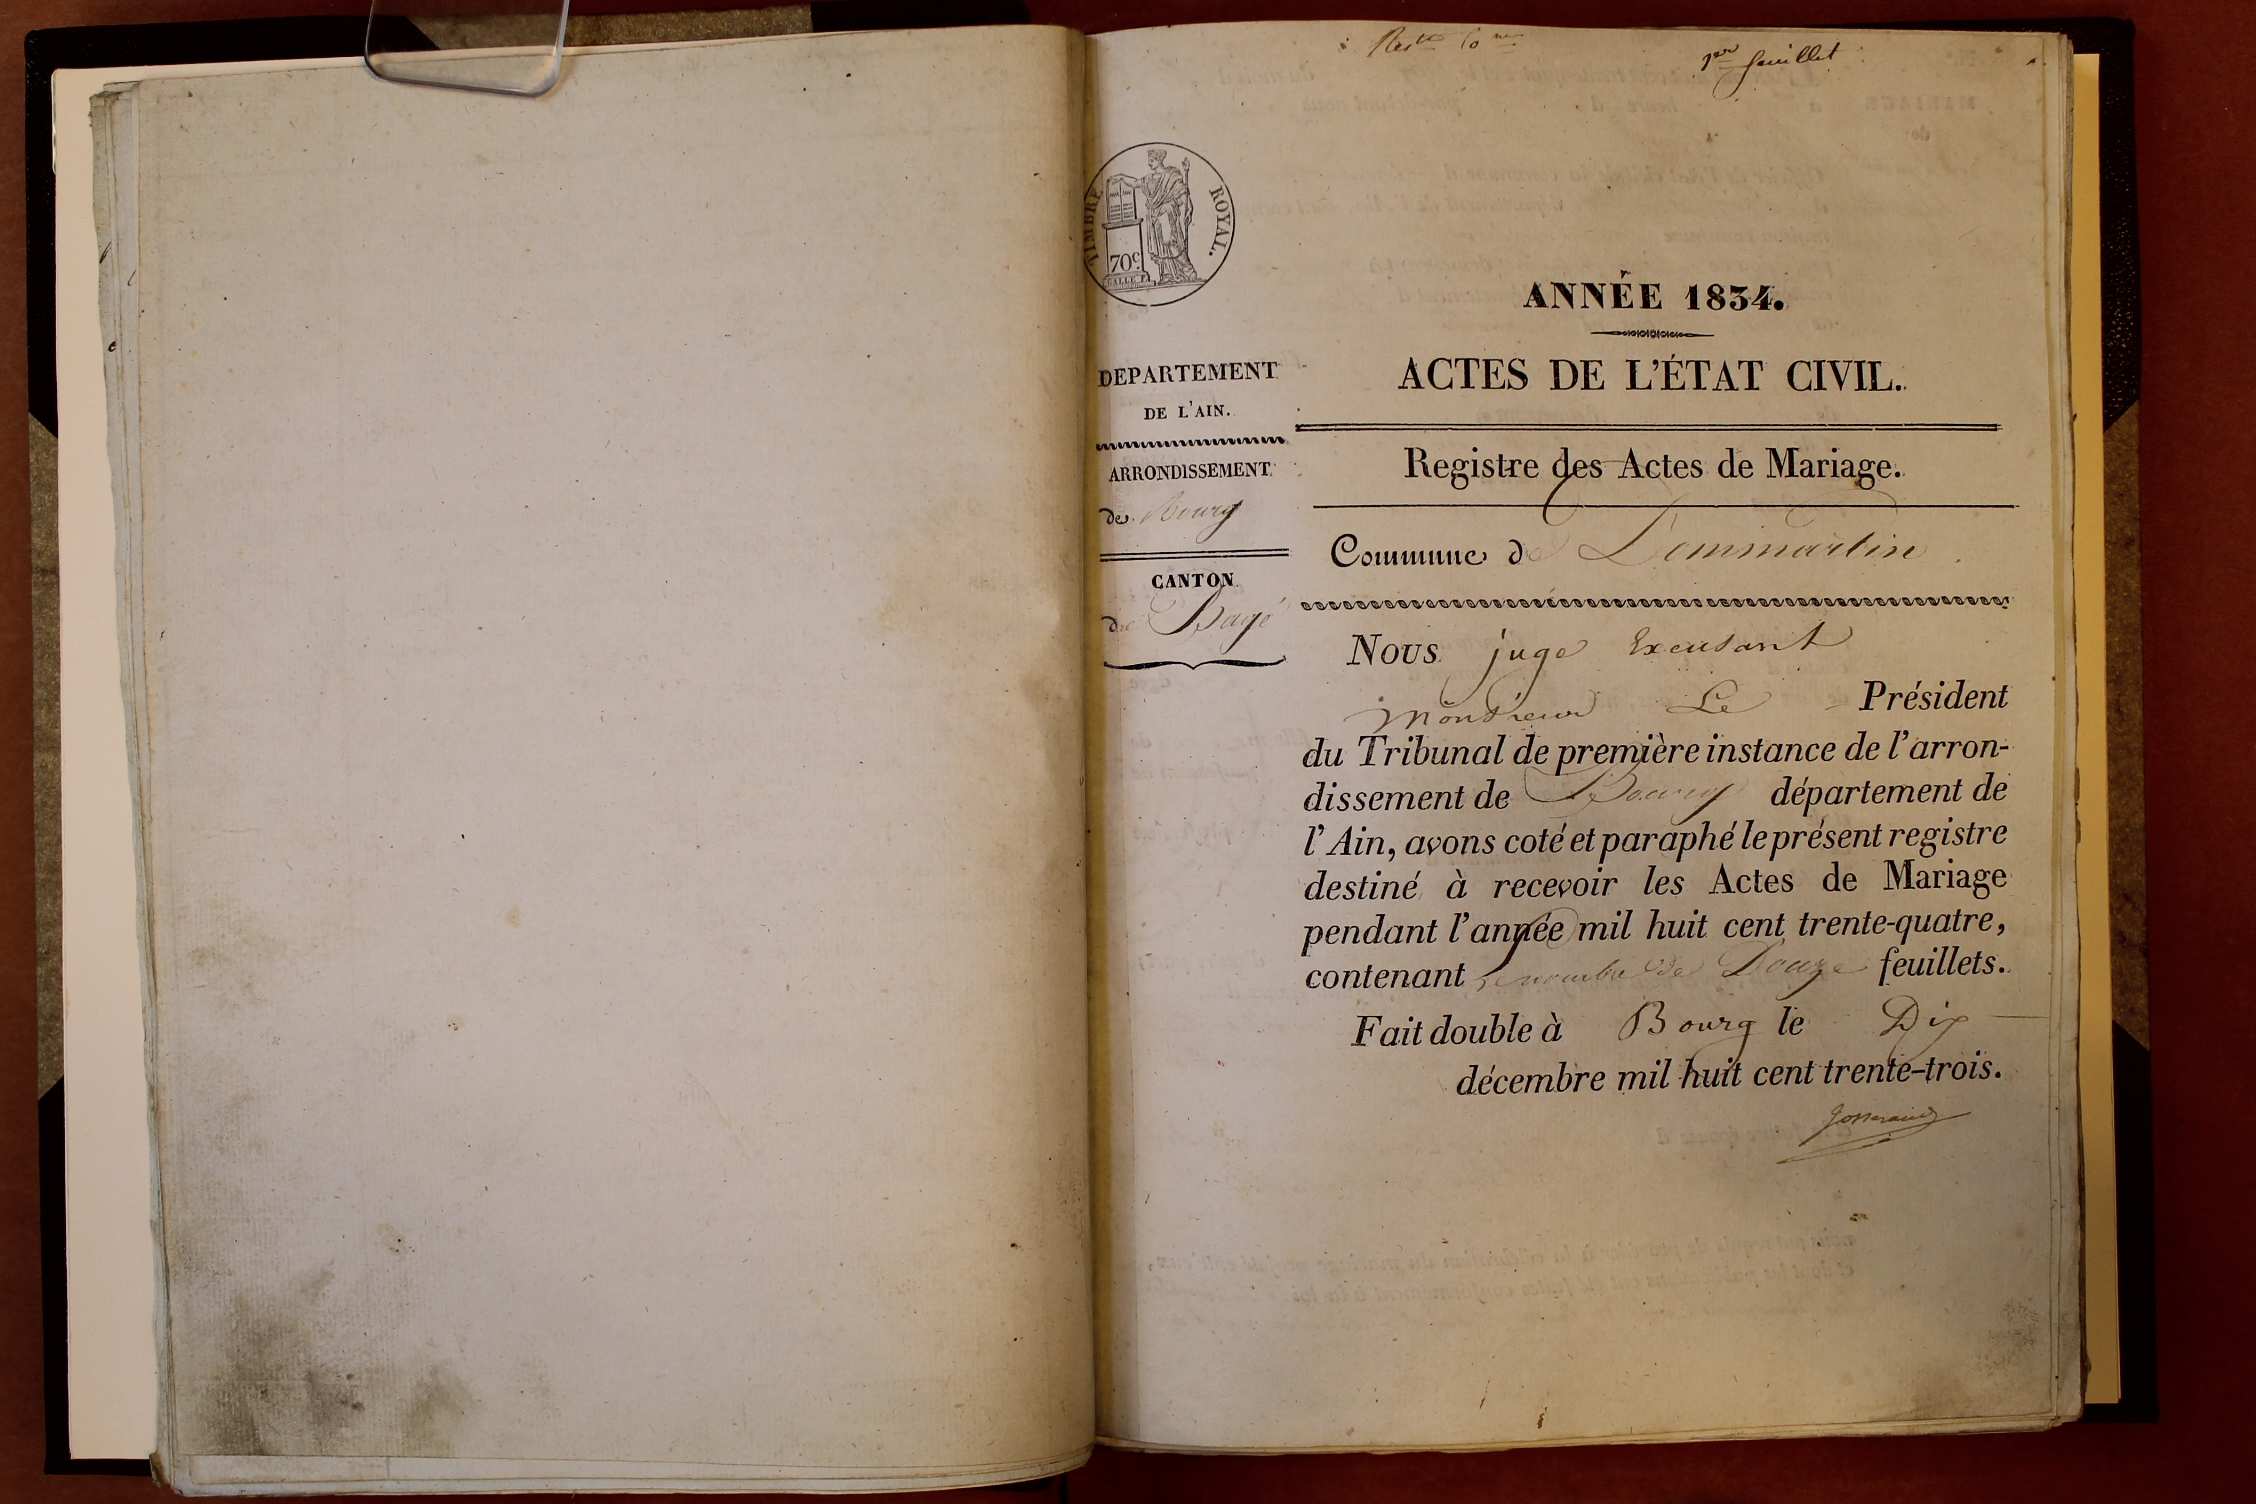 1er feuillet
TIMBRE ROYAL.
70c
ANNÉE 1834.
ACTES DE L'ÉTAT CIVIL.
DEPARTEMENT
DE L'AIN.
ARRONDISSEMENT
de Bourg
CANTON
de Bagé
Registre des Actes de Mariage.
Commune de Dommartin
Nous juge Excusant
Monsieur Le Président
du Tribunal de première instance de l'arron-
dissement de Bourg département de
l'Ain, avons coté et paraphé le présent registre
destiné à recevoir les Actes de Mariage
pendant l'année mil huit cent trente-quatre,
contenant nombre de Douze feuillets.
Fait double à Bourg le Dix
décembre mil huit cent trente-trois.